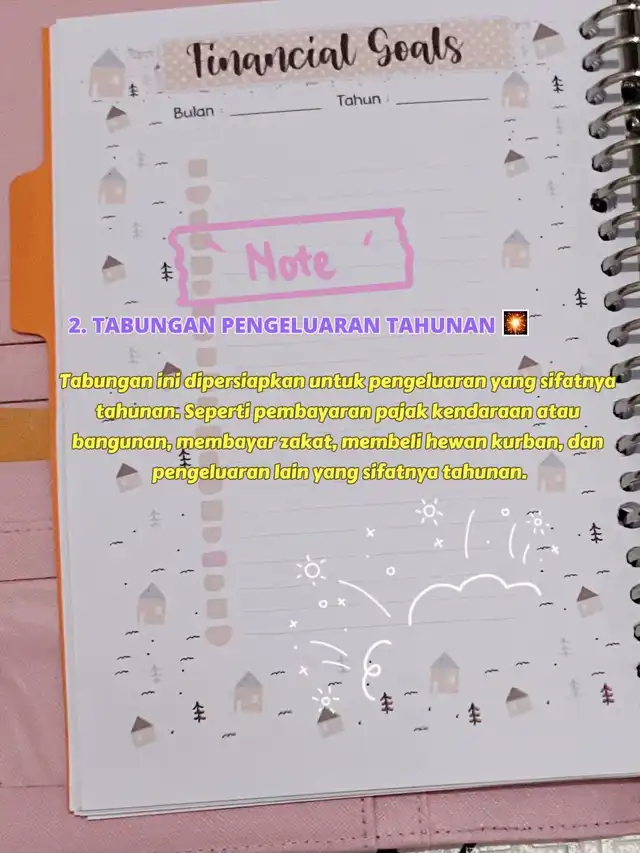 Financial Goals
Bulan : Tahun :
Note
2. TABUNGAN PENGELUARAN TAHUNAN 💥
Tabungan ini dipersiapkan untuk pengeluaran yang sifatnya
tahunan. Seperti pembayaran pajak kendaraan atau
bangunan, membayar zakat, membeli hewan kurban, dan
pengeluaran lain yang sifatnya tahunan.